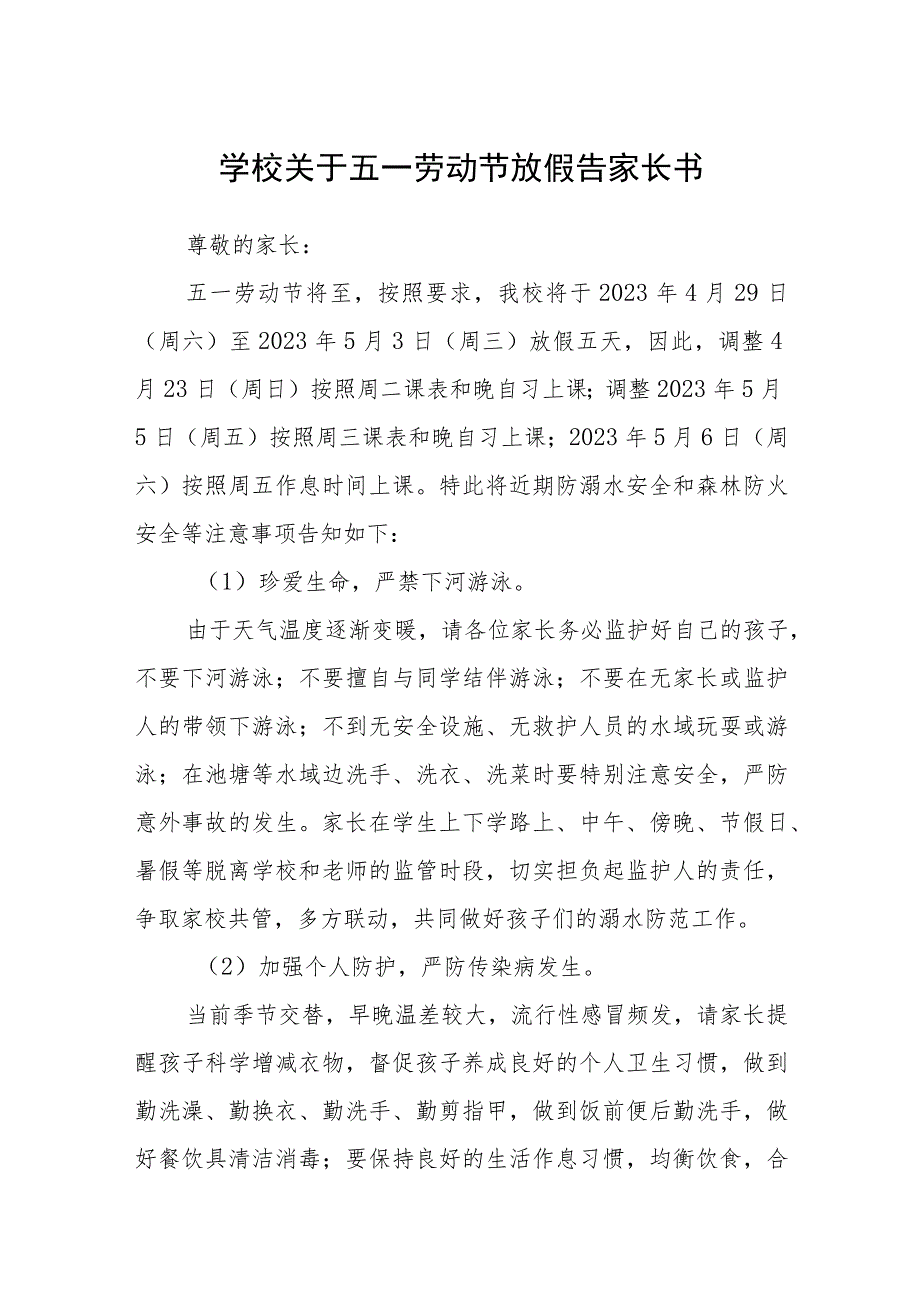 学校关于五一劳动节放假告家长书
尊敬的家长：
五一劳动节将至，按照要求，我校将于 2023 年 4 月 29 日
（周六）至 2023 年 5 月 3 日（周三）放假五天，因此，调整 4
月 23 日（周日）按照周二课表和晚自习上课；调整 2023 年 5 月
5 日（周五）按照周三课表和晚自习上课；2023 年 5 月 6 日（周
六）按照周五作息时间上课。特此将近期防溺水安全和森林防火
安全等注意事项告知如下：
（1）珍爱生命，严禁下河游泳。
由于天气温度逐渐变暖，请各位家长务必监护好自己的孩子，
不要下河游泳；不要擅自与同学结伴游泳；不要在无家长或监护
人的带领下游泳；不到无安全设施、无救护人员的水域玩耍或游
泳；在池塘等水域边洗手、洗衣、洗菜时要特别注意安全，严防
意外事故的发生。家长在学生上下学路上、中午、傍晚、节假日、
暑假等脱离学校和老师的监管时段，切实担负起监护人的责任，
争取家校共管，多方联动，共同做好孩子们的溺水防范工作。
（2）加强个人防护，严防传染病发生。
当前季节交替，早晚温差较大，流行性感冒频发，请家长提
醒孩子科学增减衣物，督促孩子养成良好的个人卫生习惯，做到
勤洗澡、勤换衣、勤洗手、勤剪指甲，做到饭前便后勤洗手，做
好餐饮具清洁消毒；要保持良好的生活作息习惯，均衡饮食，合